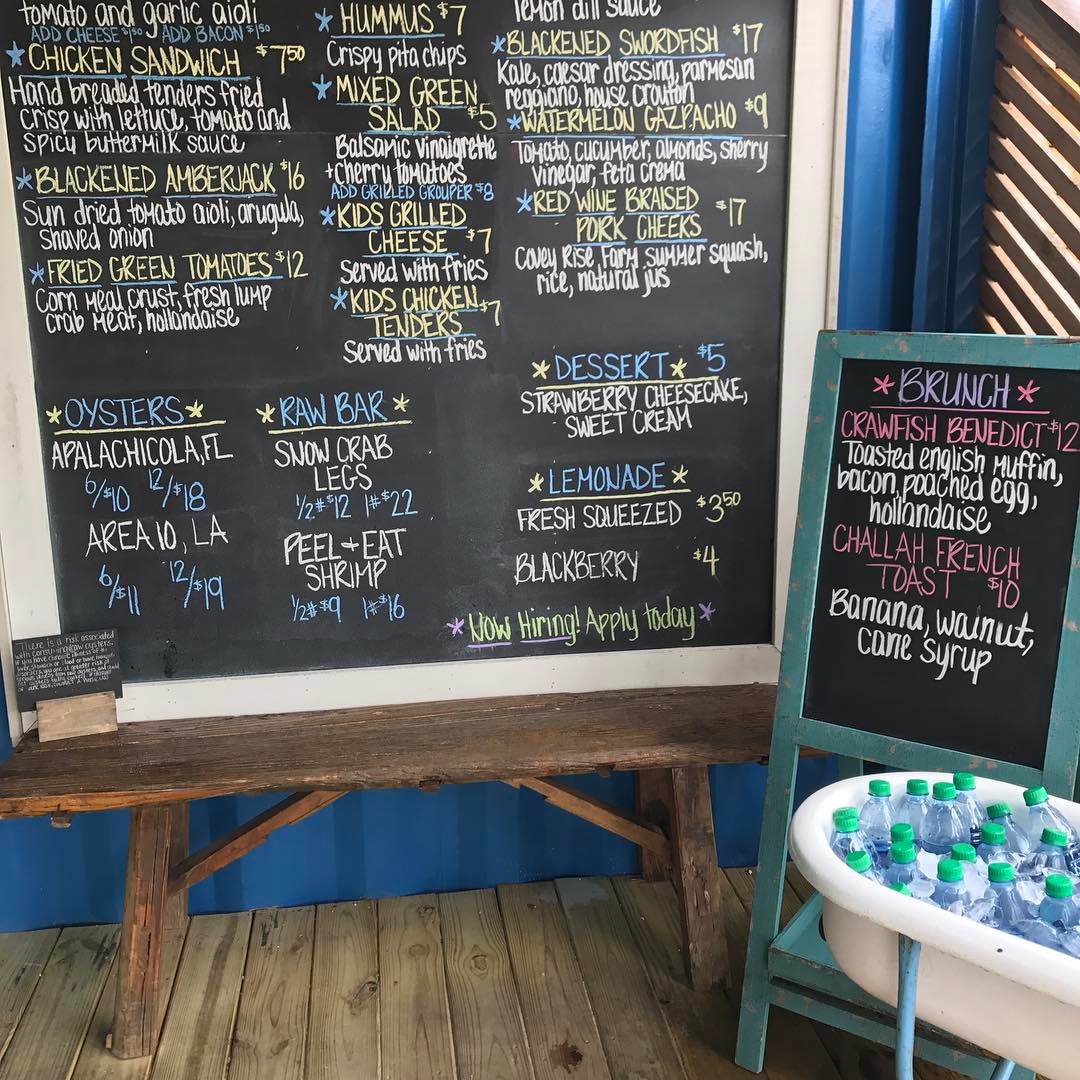 tomato and garlic aioli
ADD CHEESE $1.50 ADD BACON $1.50
* CHICKEN SANDWICH $7.50
Hand breaded tenders fried
crisp with lettuce, tomato and
spicy buttermilk sauce
* BLACKENED AMBERJACK $16
Sun dried tomato aioli, arugula,
shaved onion
* FRIED GREEN TOMATOES $12
Corn meal crust, fresh lump
crab meat, hollandaise
* HUMMUS $7
Crispy pita chips
* MIXED GREEN
SALAD $5
Balsamic vinaigrette
+ cherry tomatoes
ADD GRILLED GROUPER $8
* KIDS GRILLED
CHEESE $7
Served with fries
* KIDS CHICKEN
TENDERS $7
Served with fries
lemon dill sauce
* BLACKENED SWORDFISH $17
Kale, caesar dressing, parmesan
reggiano, house crouton
* WATERMELON GAZPACHO $9
Tomato, cucumber, almonds, sherry
vinegar, feta crema
* RED WINE BRAISED
PORK CHEEKS $17
Covey Rise Farm summer squash,
rice, natural jus
* OYSTERS *
APALACHICOLA, FL
6/$10 12/$18
AREA 10, LA
6/$11 12/$19
* RAW BAR *
SNOW CRAB
LEGS
1/2# $12 1# $22
PEEL + EAT
SHRIMP
1/2# $9 1# $16
* DESSERT * $5
STRAWBERRY CHEESECAKE,
SWEET CREAM
* LEMONADE *
FRESH SQUEEZED $3.50
BLACKBERRY $4
* Now Hiring! Apply today *
There is a risk associated
with consuming raw oysters.
* BRUNCH *
CRAWFISH BENEDICT $12
Toasted english muffin,
bacon, poached egg,
hollandaise
CHALLAH FRENCH
TOAST $10
Banana, walnut,
cane syrup